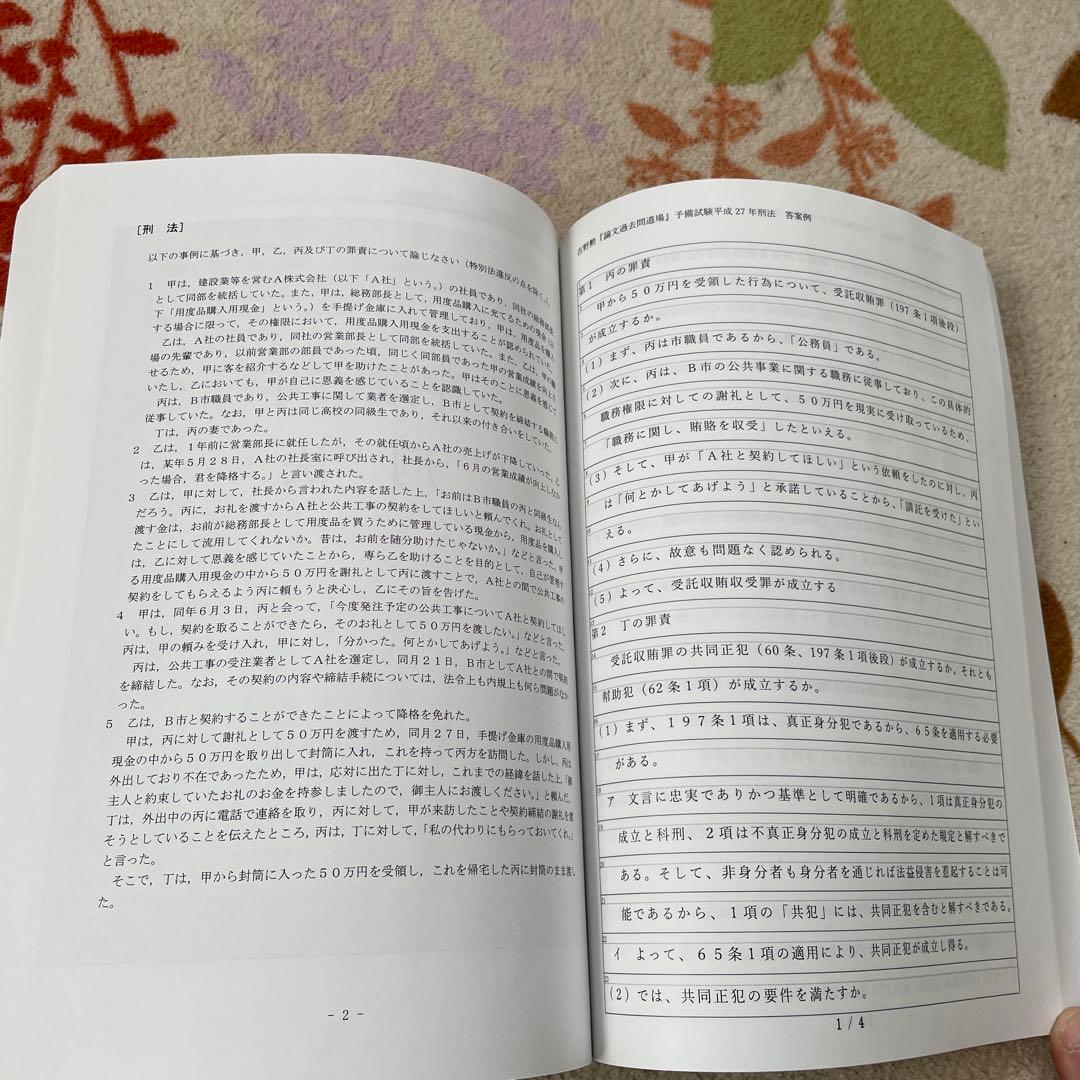 ［刑 法］
以下の事例に基づき，甲，乙，丙及び丁の罪責について論じなさい（特別法違反の点を除く。）。
1 甲は，建設業等を営むＡ株式会社（以下「Ａ社」という。）の社員であり，同社の総務部長
として同部を統括していた。また，甲は，総務部長として，用度品購入に充てるための現金（以
下「用度品購入用現金」という。）を手提げ金庫に入れて管理しており，甲は，用度品を購入
する場合に限って，その権限において，用度品購入用現金を支出することが認められていた。
乙は，Ａ社の社員であり，同社の営業部長として同部を統括していた。また，乙は，甲の職
場の先輩であり，以前営業部の部員であった頃，同じく同部員であった甲の営業成績を向上さ
せるため，甲に客を紹介するなどして甲を助けたことがあった。甲はそのことに恩義を感じて
いたし，乙においても，甲が自己に恩義を感じていることを認識していた。
丙は，Ｂ市職員であり，公共工事に関して業者を選定し，Ｂ市として契約を締結する職務に
従事していた。なお，甲と丙は同じ高校の同級生であり，それ以来の付き合いをしていた。
丁は，丙の妻であった。
2 乙は，１年前に営業部長に就任したが，その就任頃からＡ社の売上げが下降していった。乙
は，某年５月２８日，Ａ社の社長室に呼び出され，社長から，「６月の営業成績が向上しなか
った場合，君を降格する。」と言い渡された。
3 乙は，甲に対して，社長から言われた内容を話した上，「お前はＢ市職員の丙と同級生なん
だろう。丙に，お礼を渡すからＡ社と公共工事の契約をしてほしいと頼んでくれ。お礼として
渡す金は，お前が総務部長として用度品を買うために管理している現金から，用度品を購入し
たことにして流用してくれないか。昔は，お前を随分助けたじゃないか。」などと言った。甲
は，乙に対して恩義を感じていたことから，専ら乙を助けることを目的として，自己が管理す
る用度品購入用現金の中から５０万円を謝礼として丙に渡すことで，Ａ社との間で公共工事の
契約をしてもらえるよう丙に頼もうと決心し，乙にその旨を告げた。
4 甲は，同年６月３日，丙と会って，「今度発注予定の公共工事についてＡ社と契約してほし
い。もし，契約を取ることができたら，そのお礼として５０万円を渡したい。」などと言った。
丙は，甲の頼みを受け入れ，甲に対し，「分かった。何とかしてあげよう。」などと言った。
丙は，公共工事の受注業者としてＡ社を選定し，同月２１日，Ｂ市としてＡ社との間で契約
を締結した。なお，その契約の内容や締結手続については，法令上も内規上も何ら問題がなか
った。
5 乙は，Ｂ市と契約することができたことによって降格を免れた。
甲は，丙に対して謝礼として５０万円を渡すため，同月２７日，手提げ金庫の用度品購入用
現金の中から５０万円を取り出して封筒に入れ，これを持って丙方を訪問した。しかし，丙は
外出しており不在であったため，甲は，応対に出た丁に対し，これまでの経緯を話した上，「御
主人と約束していたお礼のお金を持参しましたので，御主人にお渡しください。」と頼んだ。
丁は，外出中の丙に電話で連絡を取り，丙に対して，甲が来訪したことや契約締結の謝礼を渡
そうとしていることを伝えたところ，丙は，丁に対して，「私の代わりにもらっておいてくれ。」
と言った。
そこで，丁は，甲から封筒に入った５０万円を受領し，これを帰宅した丙に封筒のまま渡し
た。
- 2 -
吉野勲『論文過去問道場』予備試験平成 27 年刑法 答案例
第１ 丙の罪責
甲から５０万円を受領した行為について、受託収賄罪（197 条１項後段）
が成立するか。
（１）まず、丙は市職員であるから、「公務員」である。
（２）次に、丙は、Ｂ市の公共事業に関する職務に従事しており、この具体的
職務権限に対しての謝礼として、５０万円を現実に受け取っているため、
「職務に関し、賄賂を収受」したといえる。
（３）そして、甲が「Ａ社と契約してほしい」という依頼をしたのに対し、丙
は「何とかしてあげよう」と承諾していることから、「請託を受けた」とい
える。
（４）さらに、故意も問題なく認められる。
（５）よって、受託収賄収受罪が成立する
第２ 丁の罪責
受託収賄罪の共同正犯（60 条、197 条１項後段）が成立するか。それとも
幇助犯（62 条１項）が成立するか。
（１）まず、１９７条１項は、真正身分犯であるから、６５条を適用する必要
がある。
ア 文言に忠実でありかつ基準として明確であるから、１項は真正身分犯の
成立と科刑、２項は不真正身分犯の成立と科刑を定めた規定と解すべきで
ある。そして、非身分者も身分者を通じれば法益侵害を惹起することは可
能であるから、１項の「共犯」には、共同正犯を含むと解すべきである。
イ よって、６５条１項の適用により、共同正犯が成立し得る。
（２）では、共同正犯の要件を満たすか。
1 / 4